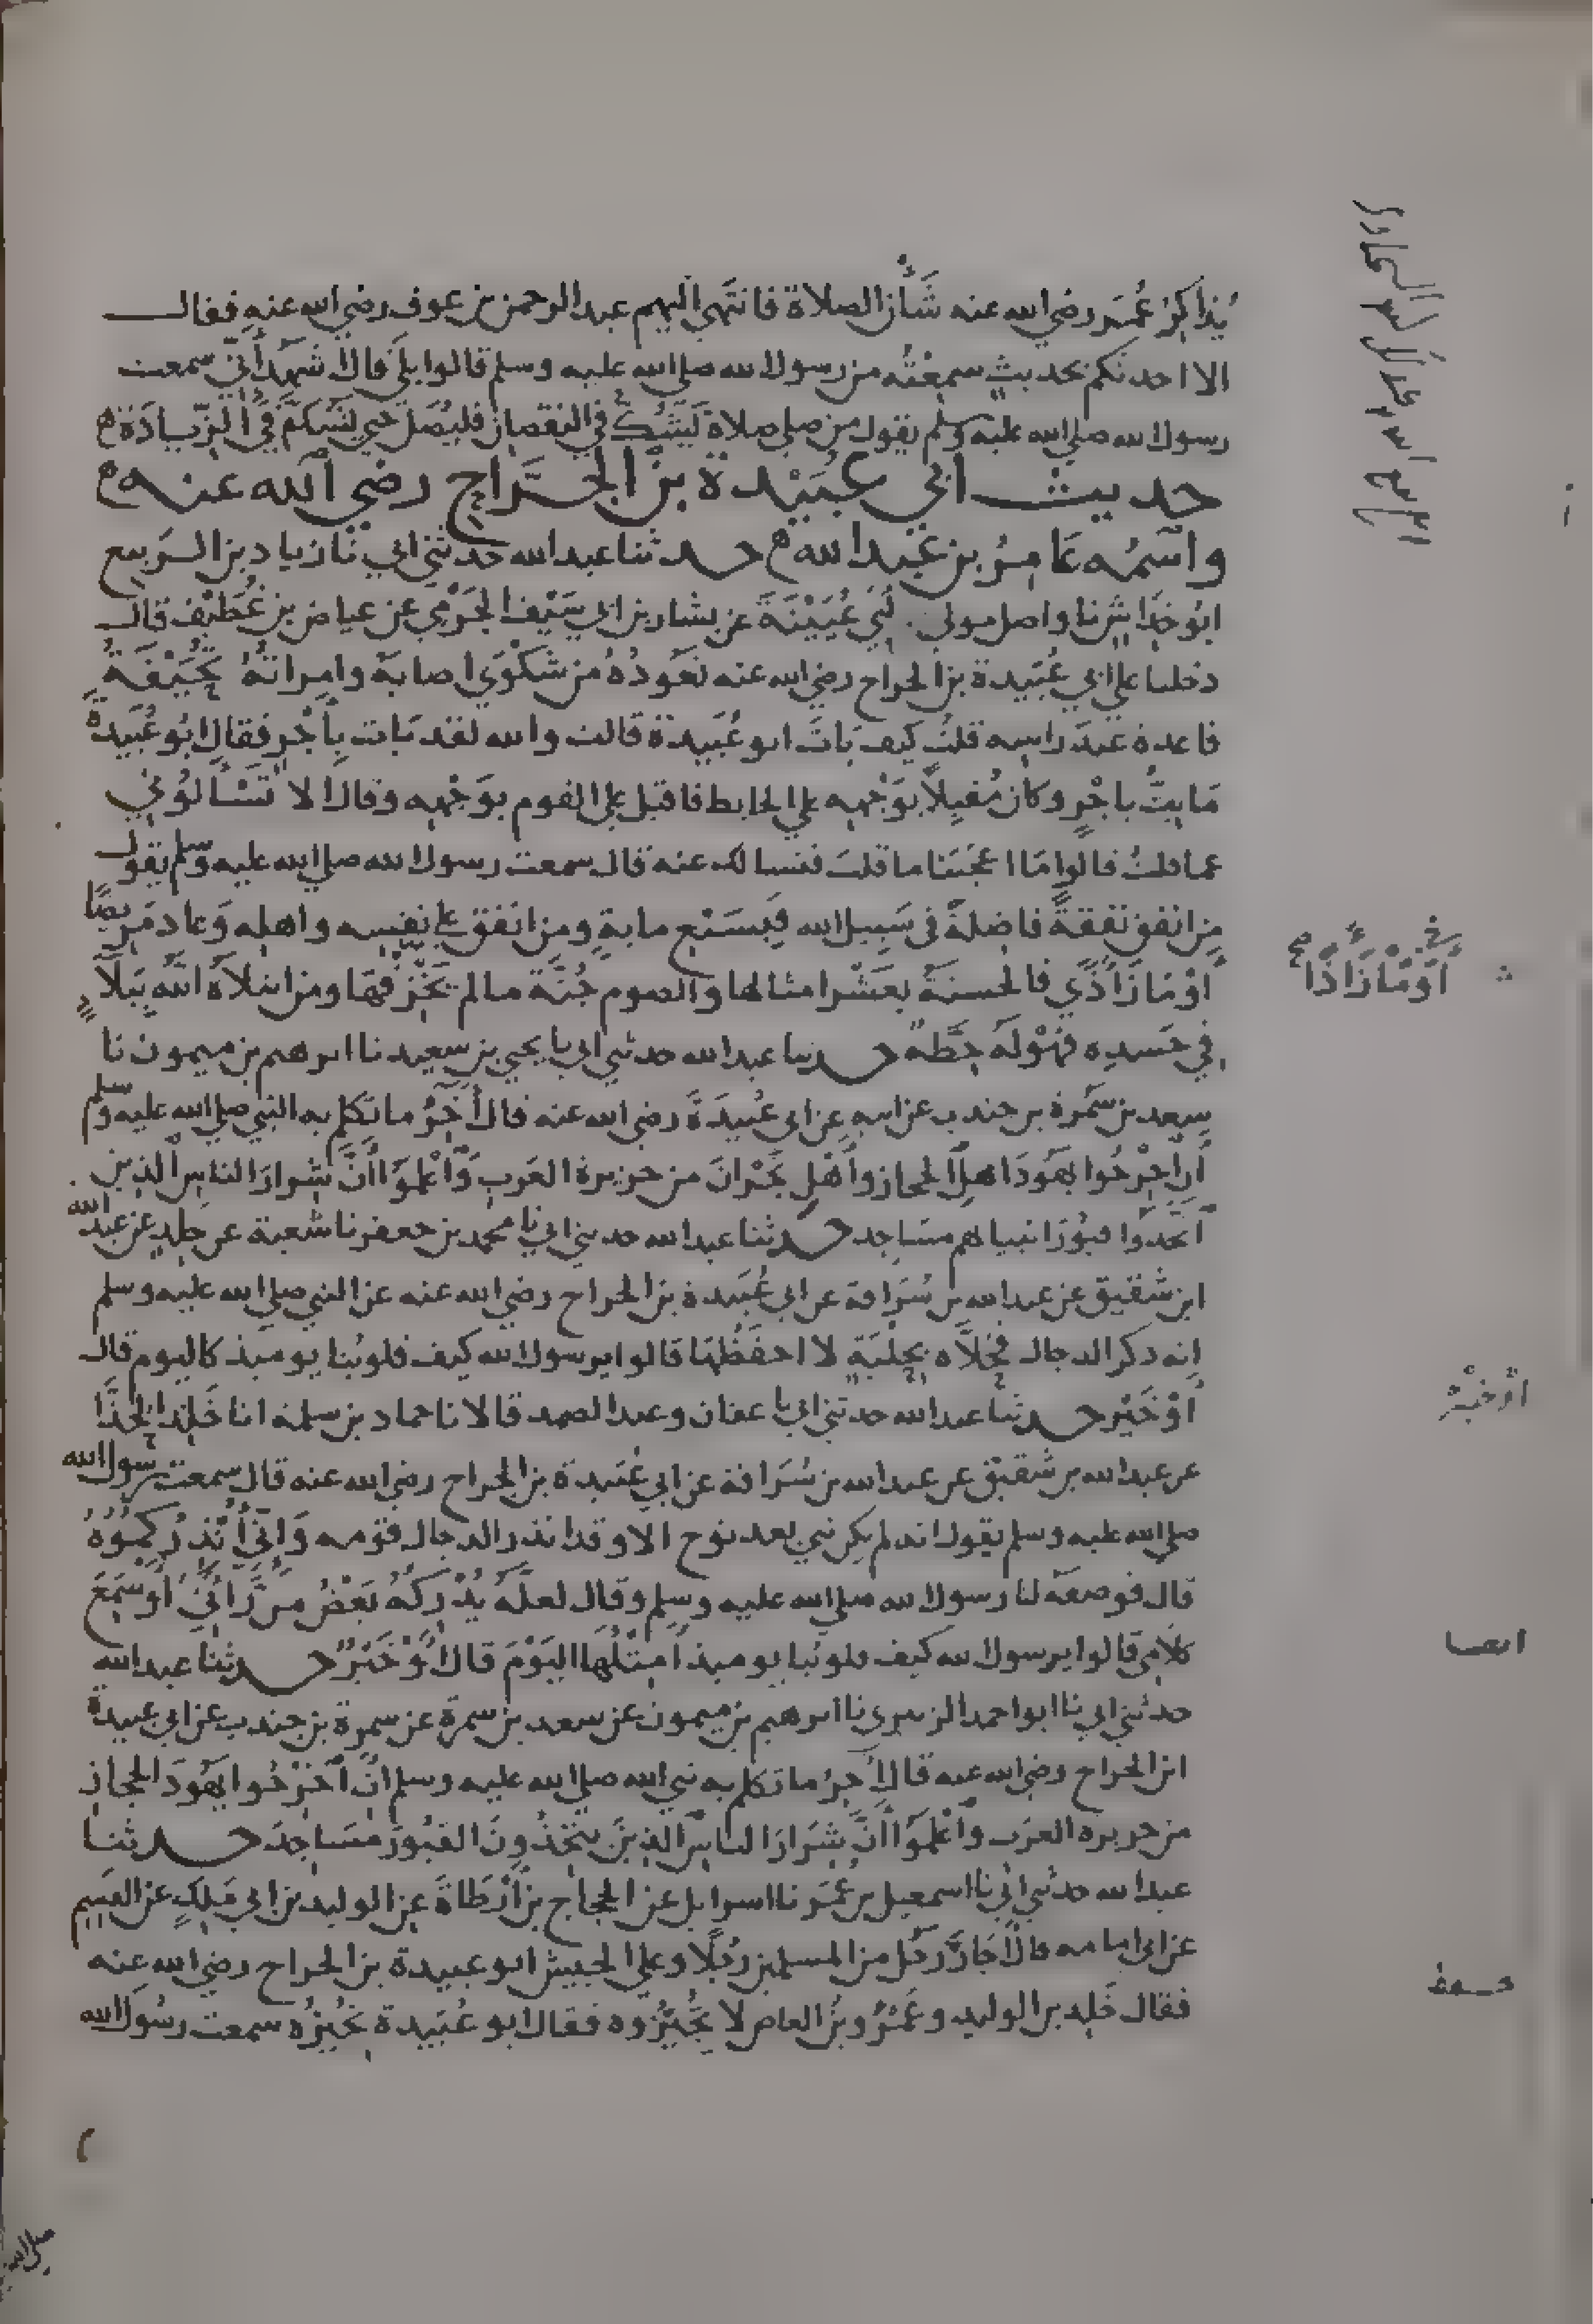 يُذاكِرُ عُمَر رضي الله عنه شَأن الصلاة فانتَهي اليهم عبد الرحمن بن عوف رضي الله عنه فقال
الا احدثكم بحديثٍ سمِعْتُه من رسول الله صلى الله عليه وسلم قالوا بلى قال اشهد أني سمعت
رسول الله صلى الله عليه وسلم يقول من صلى صلاة يَشُكّ في النقصان فليُصَل حتى يشك في الزيادة
حديث ابي عبيدة بن الجراح رضي الله عنه
واسمه عامر بن عبد الله حدثنا عبد الله حدثني ابي نا زياد بن الربيع
ابُو خِدَاشٍ نا واصل مولى ابي عُيَيْنَةَ عن بشار بن ابي سَيْف الجَرْمِي عن عياض بن غُطَيْف قال
دخلنا علي ابي عُبَيدة بن الجراح رضي الله عنه نعُودُهُ من شَكْوَي اصابه وامراتهُ تُحَيْفَةُ
قاعدة عندَ راسه قلتُ كيف بَاتَ ابو عُبَيدة قالت والله لقد بَات بِأجْرٍ فقال ابُو عُبَيدةَ
مَا بِتُّ باجْرٍ وكان مُقبِلاً بوَجْهِه علي الحايط فاقبل علي القوم بوَجْهِه وقال الا تَسْألُوني
عما قلتُ قالوا مَا اعْجَبَنَا ما قلتَ فنسالك عنه قال سمعت رسول الله صلى الله عليه وسلم يقول
من انفق نفقةً فاضلةً في سَبيل الله فبِسَبْعِ مايةٍ ومن انفق علي نفسِه واهلِه وَعاد مَريضًا
أوْ مَازَ أذًي فالحسنةُ بعَشْر امثالها والصوم جُنَّة ما لم يَخْرِقْهَا ومن ابتلاهُ اللهُ ببَلاءٍ
في جَسَدِه فهُوَ لَه حِطَّةٌ حدثنا عبد الله حدثني ابي نا يحيى بن سعيد نا ابرهيم بن ميمون نا
سعد بن سَمُرة بن جندب عن ابيه عن ابي عُبيدَةَ رضي الله عنه قال أخِرُ ما تكلم به النبي صلى الله عليه وسلم
أن اخْرِجُوا يهُودَ اهلِ الحجاز وأهْلِ نَجْرانَ من جزيرة العَرب وَاعْلَموا أنَّ شِرارَ الناسِ الذين
اتَّخَذُوا قبُورَ انبيائهم مسَاجِد حدثنا عبد الله حدثني ابي نا محمد بن جعفر نا شعبة عن خلدٍ عن عبد الله
ابن شَقيق عن عبد الله بن سُرَاقة عن ابي عُبَيدة بن الجراح رضي الله عنه عن النبي صلى الله عليه وسلم
انه ذكر الدجال فحَلَّاه بِحِلْيَةٍ لا احفَظُها قالوا يرسول الله كيف قلوبُنا يوميذ كاليوم قال
أوْ خَيْر حدثنا عبد الله حدثني ابي نا عفان وعبد الصمد قالا نا حماد بن سلمة انا خَلِد الحَذَّا
عن عبد الله بن شقيق عن عبد الله بن سُرَاقة عن ابي عُبَيدة بن الجراح رضي الله عنه قال سمعت رسول الله
صلى الله عليه وسلم يقول انه لم يكن نبي بعد نوح الا وقد انذر الدجال قومه وَاني أُنْذِرُكُمُوهُ
قال فوصفَه لنا رسول الله صلى الله عليه وسلم وقال لعلَّهُ يُدْرِكُهُ بَعْضُ من رَآني أوْ سَمِعَ
كلامي قالوا يرسول الله كيف قلوبُنا يوميذ أمِثْلُها اليَوْمَ قال أوْ خَيْرٌ حدثنا عبد الله
حدثني ابي نا ابو احمد الزبيري نا ابرهيم بن ميمون عن سعد بن سمرة عن سمرة بن جندب عن ابي عبيدة
ابن الجراح رضي الله عنه قال أخِرُ ما تكلم به نبي الله صلى الله عليه وسلم أنْ أخْرِجُوا يَهُودَ الحجاز
من جزيرة العرَب واعْلَمُوا أنَّ شِرَارَ الناسِ الذينَ يتخذُونَ القبُورَ مَسَاجدَ حدثنا
عبد الله حدثني ابي نا اسمعيل بن عُمَر نا اسرايل عن الحجاج بن أرْطَاةَ عن الوليد بن ابي مَلِكٍ عن القسِم
عن ابي امامه قال أجَارَ رجُل من المسلمين رَجُلًا وعلى الجيش ابو عبيدة بن الجراح رضي الله عنه
فقال خَلِد بن الوليد وعَمْرُو بنُ العاص لا تُجِيرُوه فقال ابو عُبَيدة نُجِيرُه سمعت رسُول الله
أوْ مَازَ أذًا
او خير
ايضا